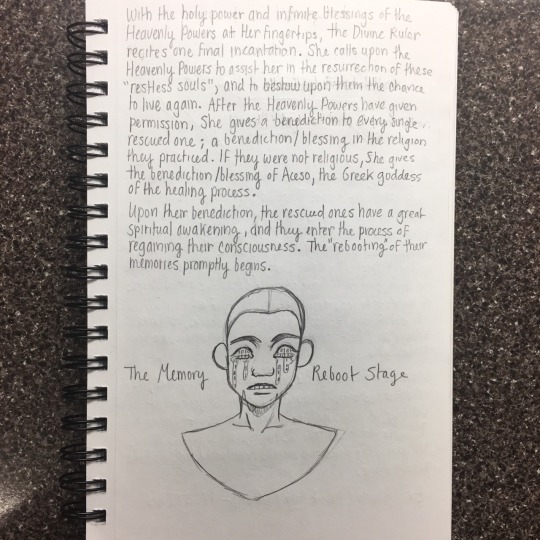 With the holy power and infinite blessings of the
Heavenly Powers at Her fingertips, the Divine Ruler
recites one final incantation. She calls upon the
Heavenly Powers to assist her in the resurrection of these
"restless souls", and to bestow upon them the chance
to live again. After the Heavenly Powers have given
permission, She gives a benediction to every single
rescued one; a benediction/blessing in the religion
they practiced. If they were not religious, She gives
the benediction/blessing of Aceso, the Greek goddess
of the healing process.
Upon their benediction, the rescued ones have a great
spiritual awakening, and they enter the process of
regaining their consciousness. The "rebooting" of their
memories promptly begins.
The Memory Reboot Stage